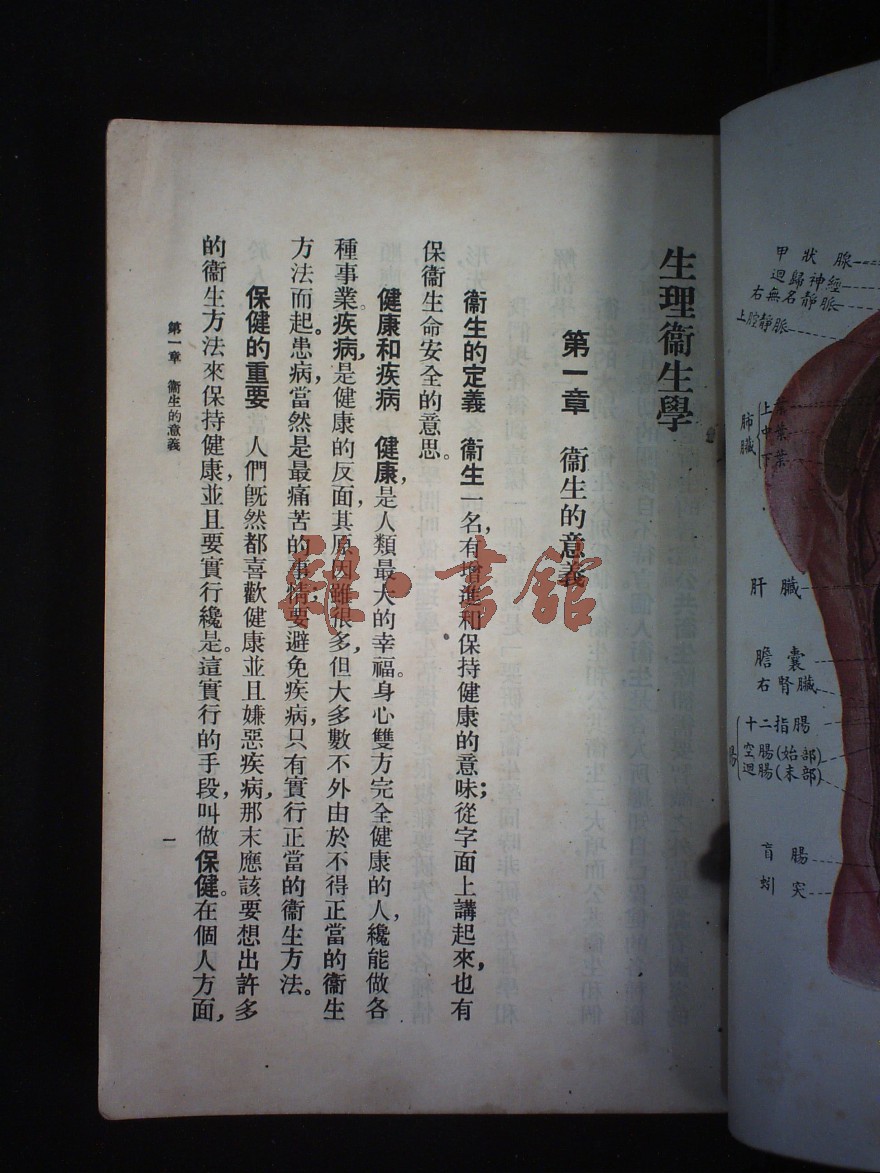 生理衞生學
第一章　衞生的意義
衞生的定義　衞生一名，有增進和保持健康的意味；從字面上講起來，也有
保衞生命安全的意思。
健康和疾病　健康，是人類最大的幸福。身心雙方完全健康的人，纔能做各
種事業。疾病，是健康的反面，其原因雖很多，但大多數不外由於不得正當的衞生
方法而起。患病，當然是最痛苦的事情，要避免疾病，只有實行正當的衞生方法。
保健的重要　人們旣然都喜歡健康並且嫌惡疾病，那末應該要想出許多
的衞生方法來保持健康，並且要實行纔是。這實行的手段，叫做保健。在個人方面，
第一章　衞生的意義
一
甲狀腺
迴歸神經
右無名靜脈
上腔靜脈
肺臟
上葉
中葉
下葉
肝臟
膽囊
右腎臟
腸
十二指腸
空腸(始部)
迴腸(末部)
盲腸
蚓突
雜·書館